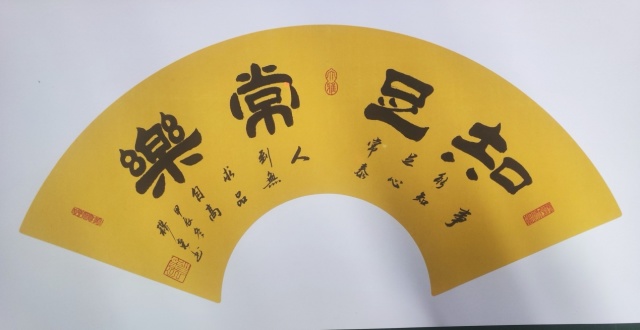 知足常樂
事
能知
足心
常泰
人
到無
求品
自高
甲辰冬